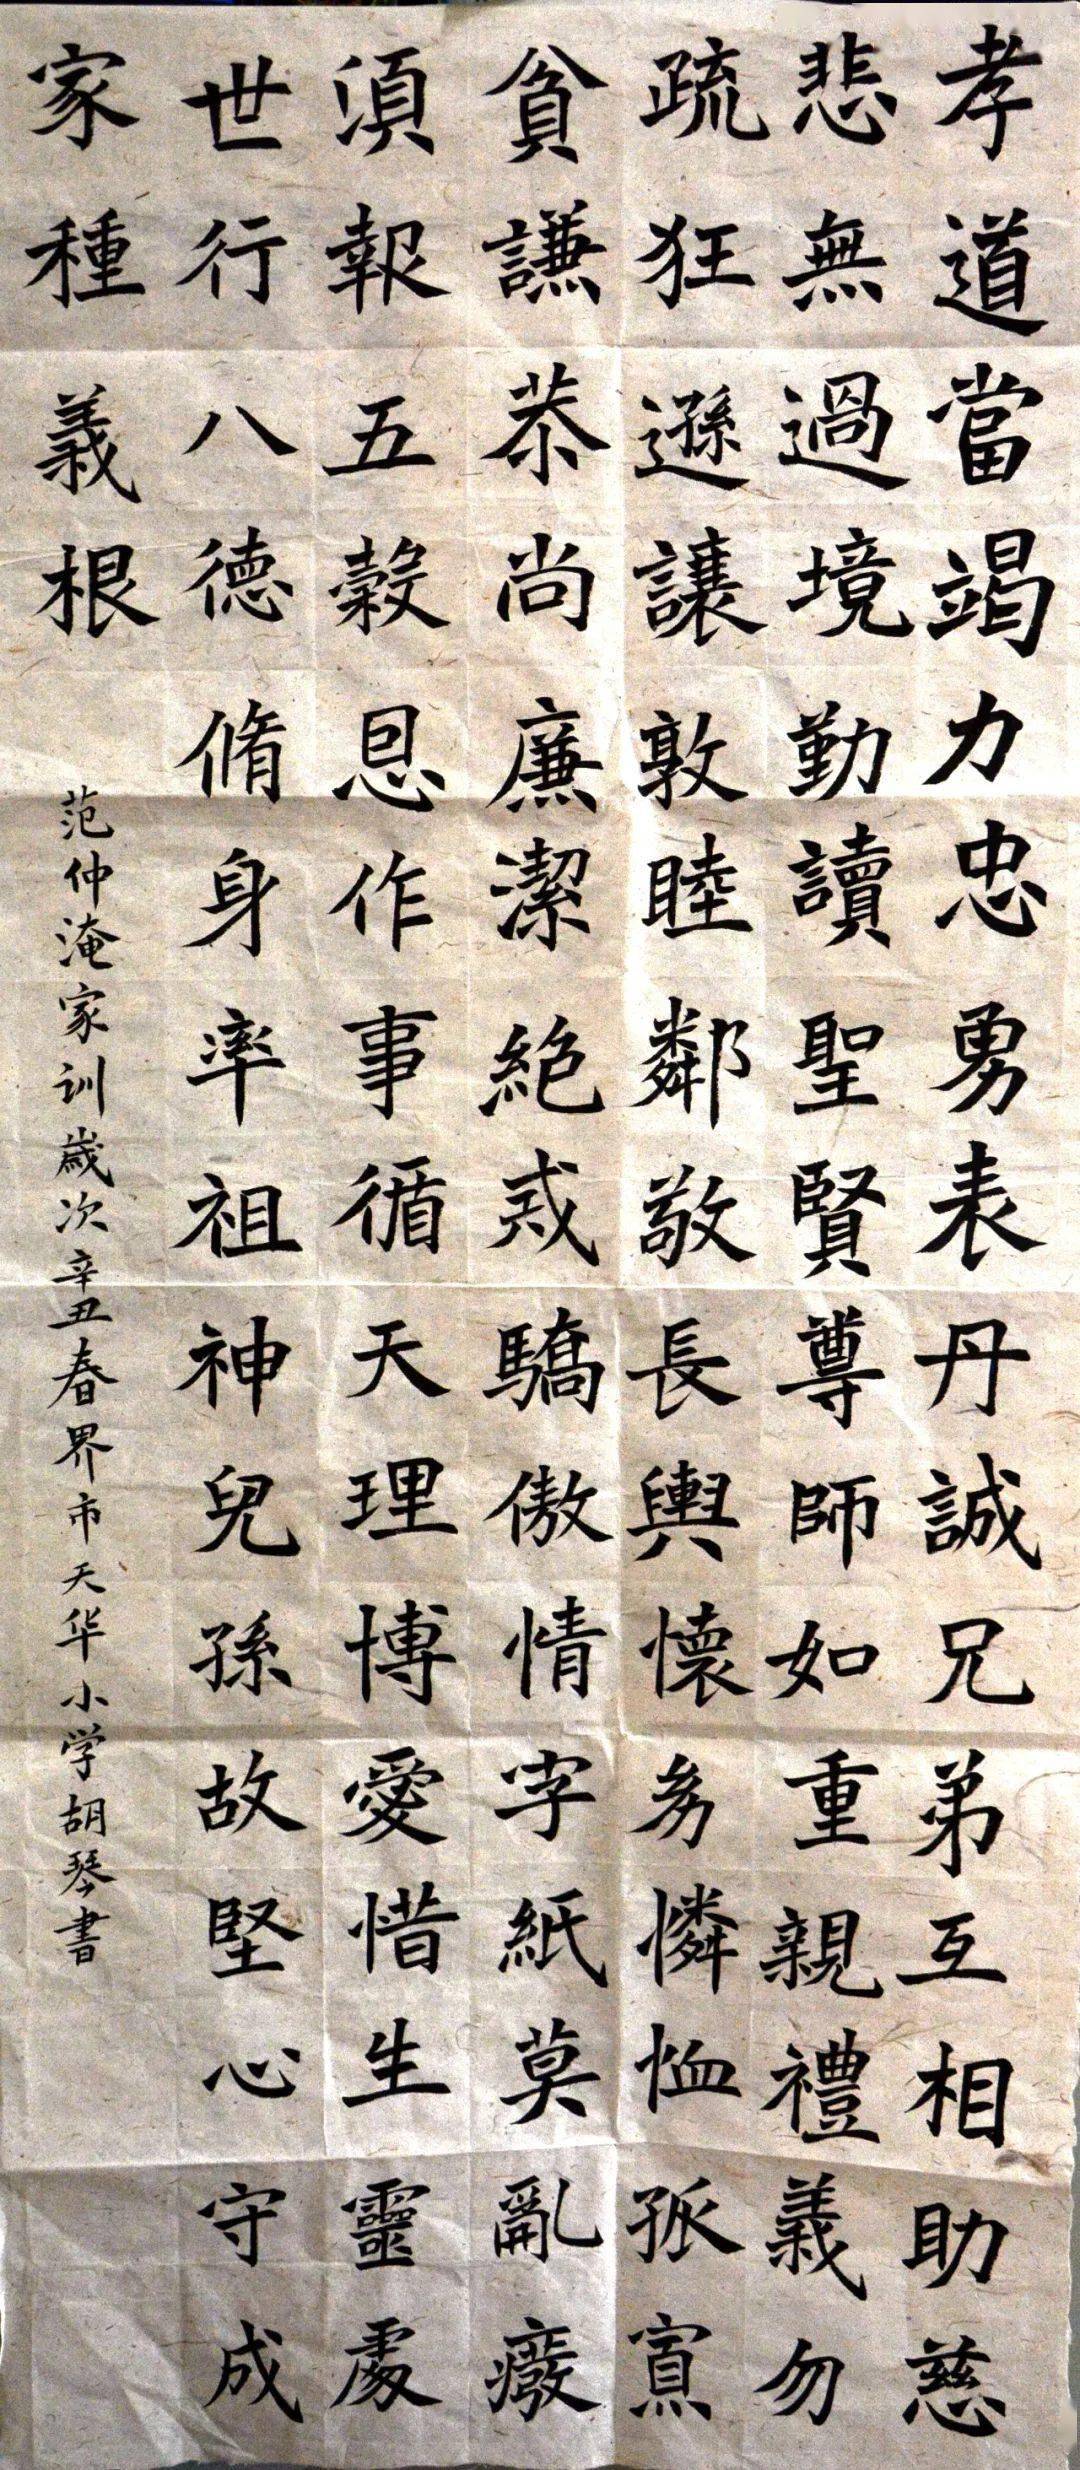 孝道當竭力忠勇表丹誠兄弟互相助慈
悲無過境勤讀聖賢尊師如重親禮義勿
疏狂遜讓敦睦鄰敬長輿懷多憐恤孤寡
貧謙恭尚廉潔絕戒驕傲情字紙莫亂廢
須報五穀恩作事循天理博愛惜生靈處
世行八德脩身率祖神兒孫故堅心守成
家種義根
范仲淹家训歲次辛丑春界市天华小学胡琴書